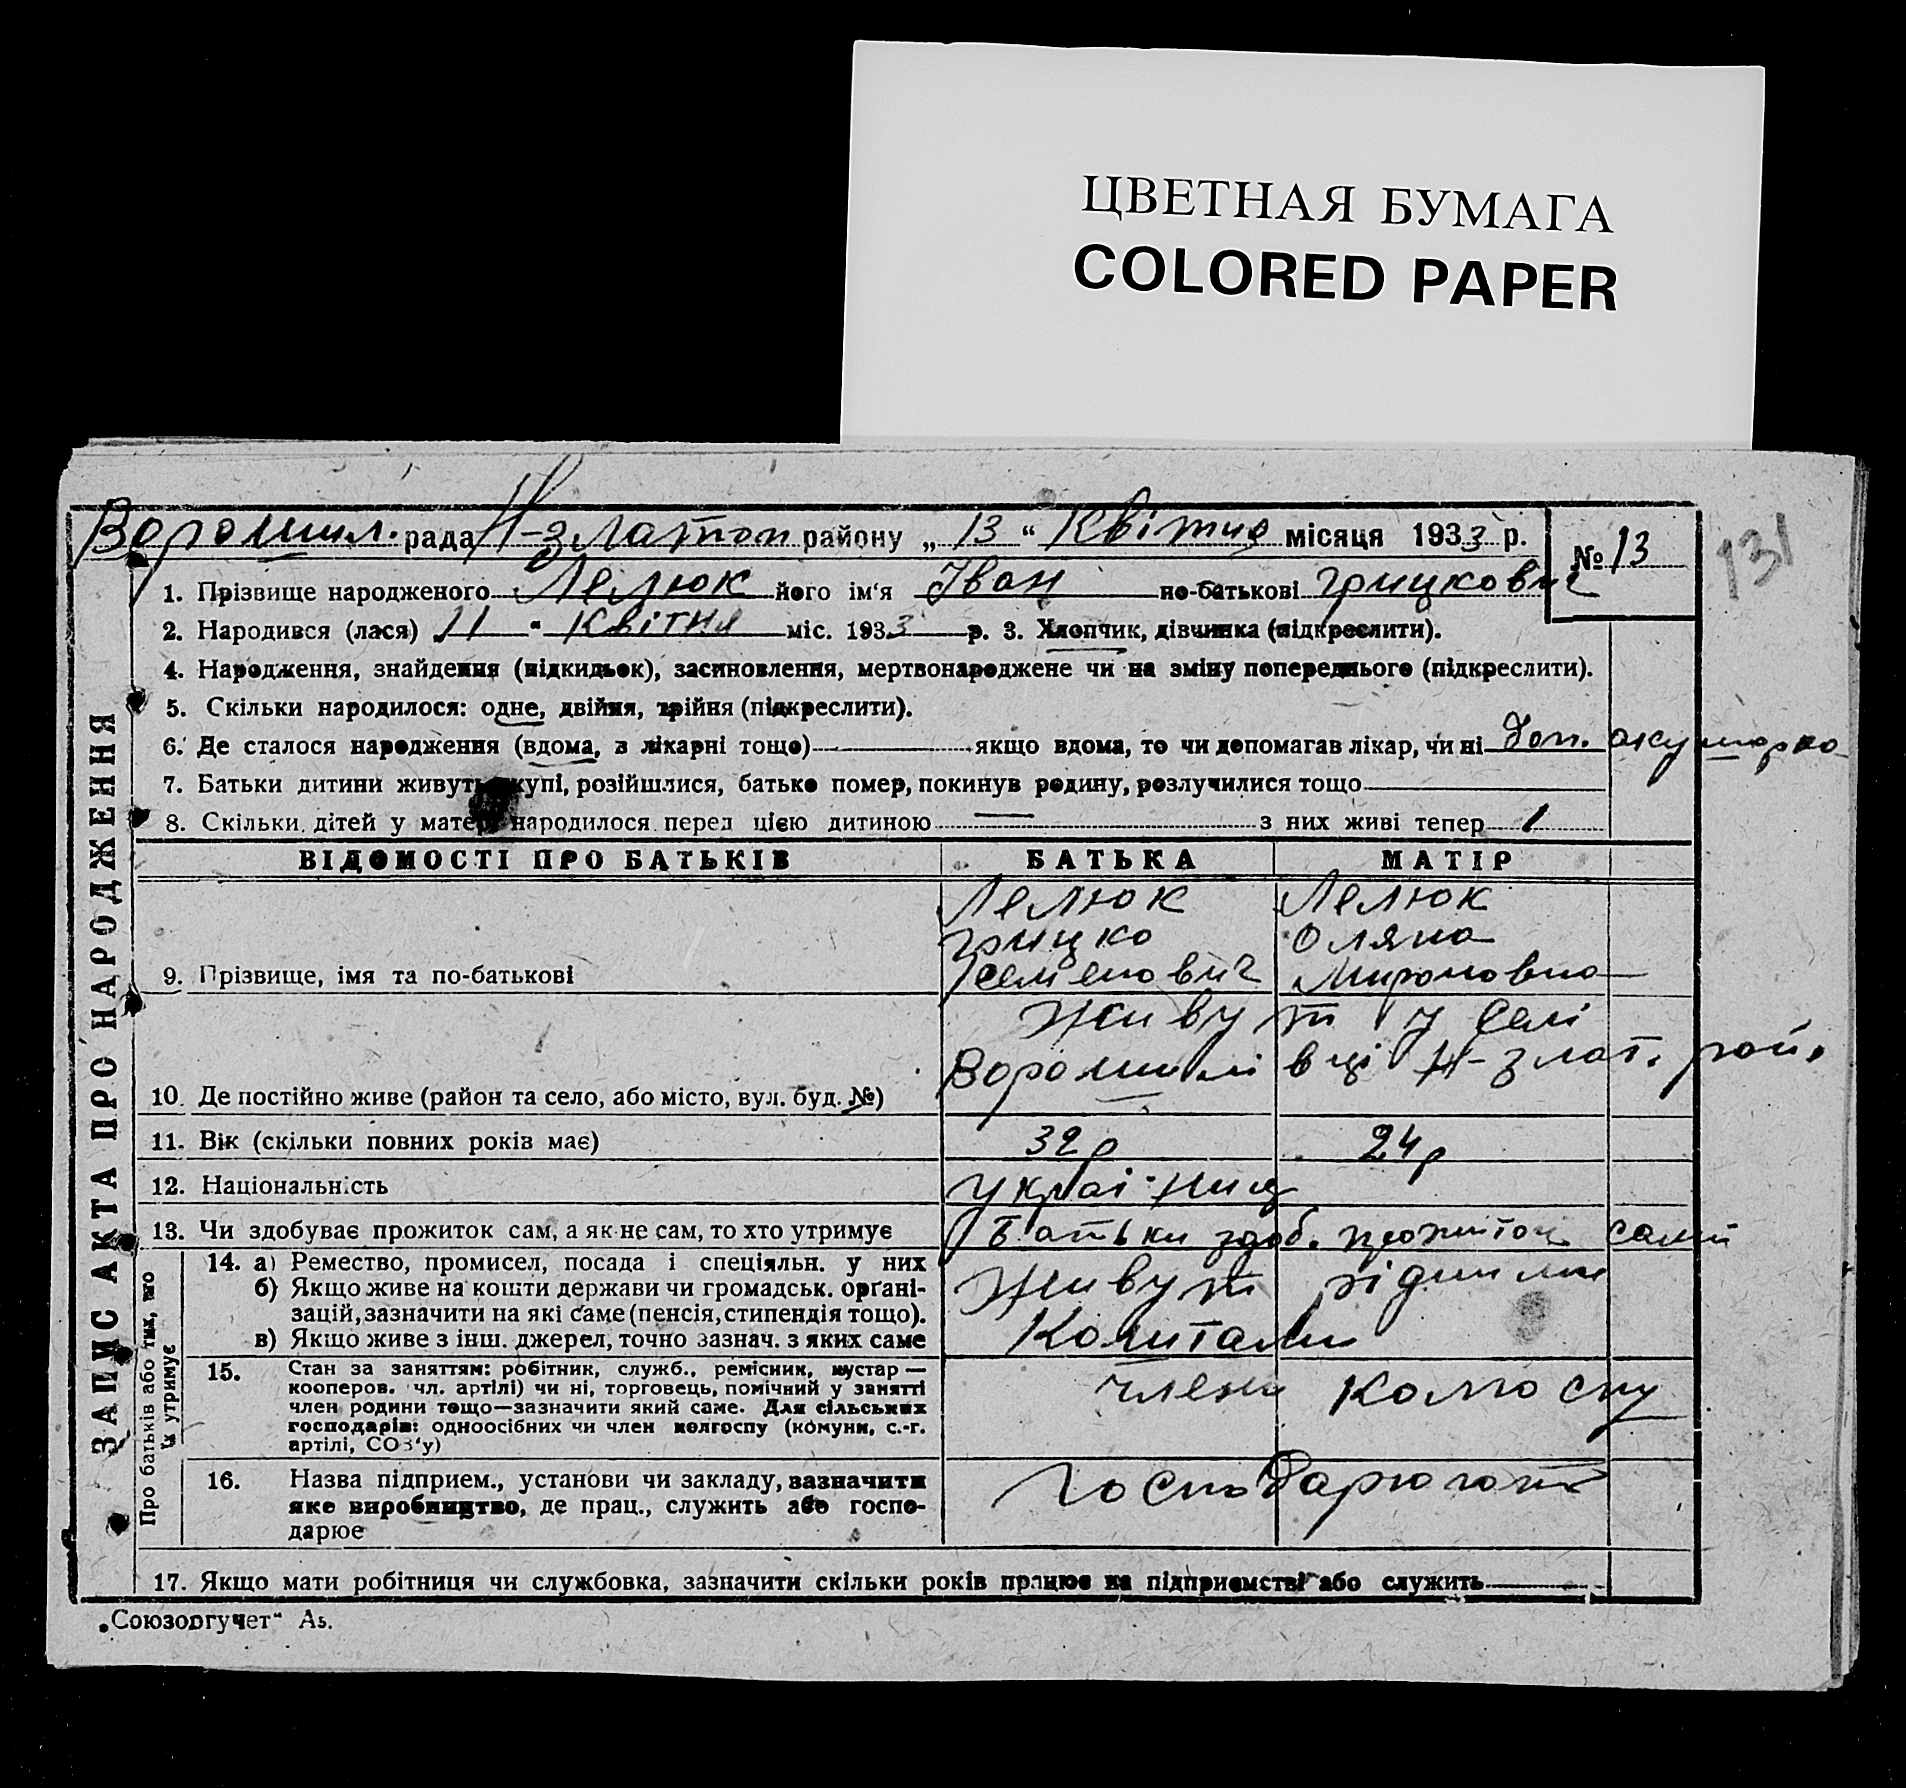 ЦВЕТНАЯ БУМАГА
COLORED PAPER
Ворошил. рада Н-златоп району „13“ Квітня місяця 1933 р. № 13
131
1. Прізвище народженого Лелюк його ім‘я Іван по-батькові Грицкович
2. Народився (лася) 11 " Квітня міс. 1933 р. 3. Хлопчик, дівчинка (підкреслити).
4. Народження, знайдення (підкидьок), засиновлення, мертвонароджене чи на зміну попереднього (підкреслити).
5. Скільки народилося: одне, двійня, трійня (підкреслити).
6. Де сталося народження (вдома, в лікарні тощо) якщо вдома, то чи допомагав лікар, чи ні Доп. акушорка
7. Батьки дитини живуть купі, розійшлися, батько помер, покинув родину, розлучилися тощо
8. Скільки дітей у матері народилося перед цією дитиною — з них живі тепер 1
ВІДОМОСТІ ПРО БАТЬКІВ БАТЬКА МАТІР
Лелюк Лелюк
Грицко Оляна
9. Прізвище, імя та по-батькові Семенович Мироновна
Живут у селі
Ворошилівці Н-злат. рай.
10. Де постійно живе (район та село, або місто, вул. буд. №)
11. Вік (скільки повних років має) 32р 24р
12. Національність Україниц
13. Чи здобуває прожиток сам, а як не сам, то хто утримує Батьки здоб. прожиток сами
14. а) Ремество, промисел, посада і спеціяльн. у них
б) Якщо живе на кошти держави чи громадськ. органі-
зацій, зазначити на які саме (пенсія, стипендія тощо).
в) Якщо живе з інш. джерел, точно зазнач. з яких саме
Живут рідними
Коштами
15. Стан за заняттям: робітник, служб., ремісник, кустар —
кооперов. чл. артілі) чи ні, торговець, помічний у занятті
член родини тощо—зазначити який саме. Для сільських
господарів: одноосібних чи член колгоспу (комуни, с.-г.
артілі, СОЗ‘у)
члени колгоспу
16. Назва підприєм., установи чи закладу, зазначити
яке виробництво, де прац., служить або госпо-
дарює
господарюют
17. Якщо мати робітниця чи службовка, зазначити скільки років працює на підприємстві або служить
ЗАПИС АКТА ПРО НАРОДЖЕННЯ
Про батьків або тих, що
їх утримує
„Союзоргучет“ Аз.